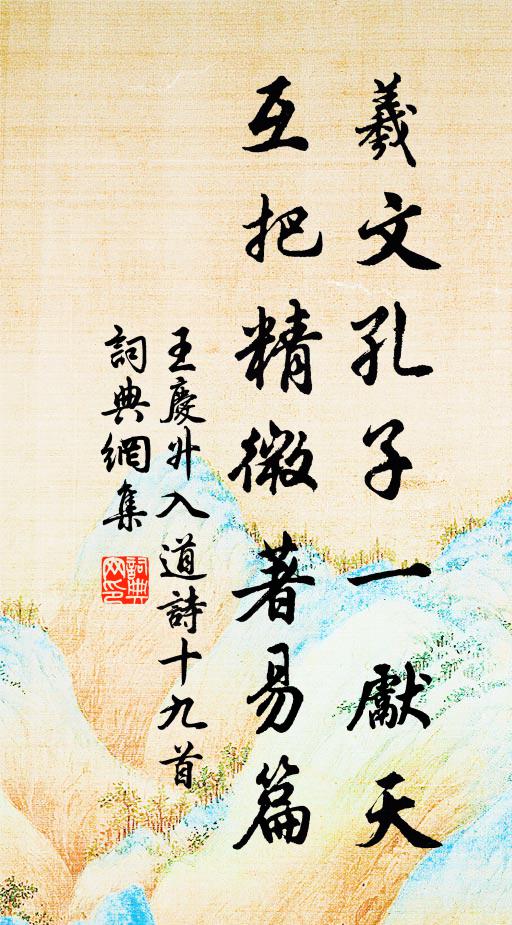 羲文孔子一獻天
互把精微著易篇
王慶升入道詩十九首
詞典網集
詞典網印